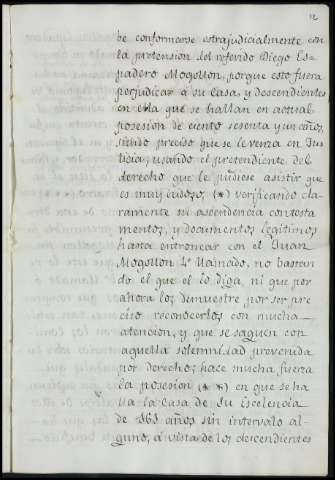 12
be conformarse estrajudicialmente con
la pretension del referido Diego Es-
padero Mogollon, porque esto fuera
perjudicar á su casa, y descendientes
en ella que se hallan en actual
posesion de ciento sesenta y un años,
siendo preciso que se le venza en Jus-
ticia; usando el pretendiente del
derecho que le pudiese asistir que
es muy dudoso, (*) verificando cla-
ramente su ascendencia con testa-
mentos, y documentos legitimos
hasta entroncar con el Juan
Mogollon 4º llamado, no bastan-
do el que el lo diga, ni que por
ahora los demuestre por ser pre-
ciso reconocerlos con mucha
atencion, y que se saquen con
aquella solemnidad prevenida
por derecho; hace mucha fuerza
la posesion (**) en que se ha-
lla la Casa de Su Escelencia
de 161 años sin intervalo al-
guno, á vista de los descendientes